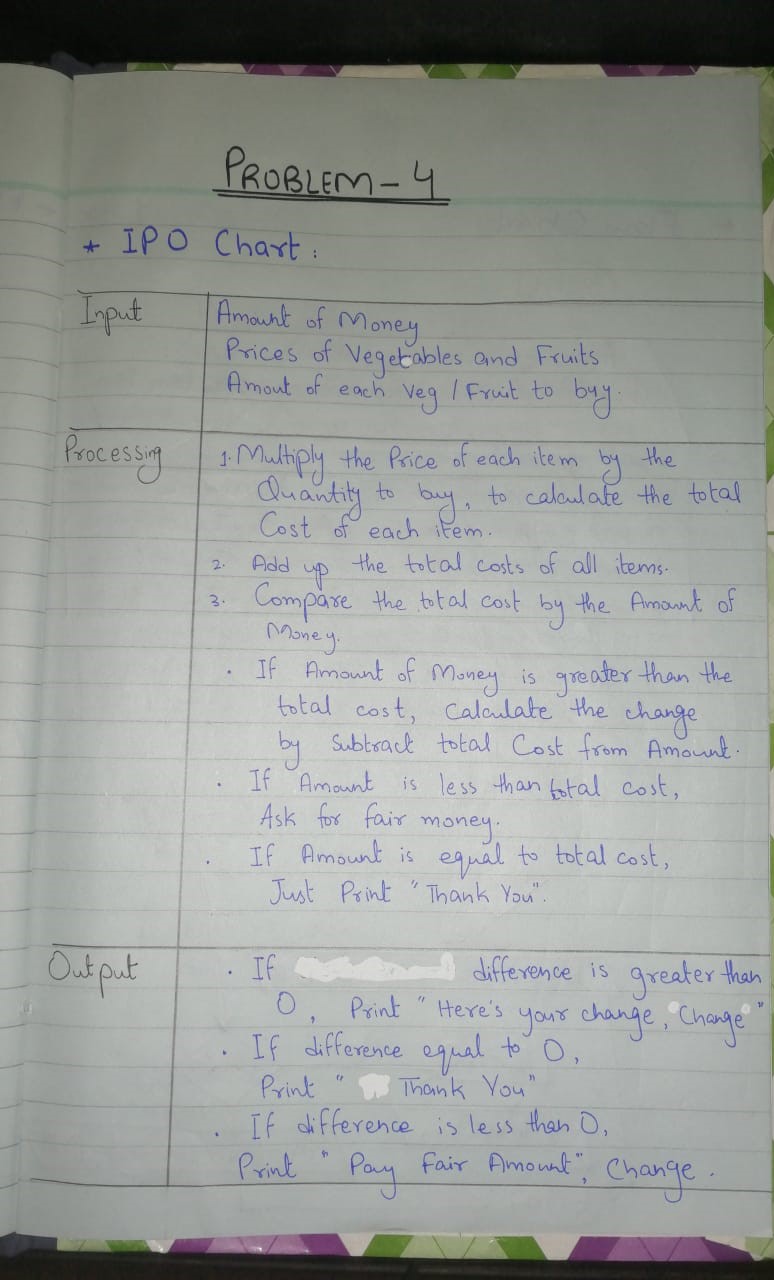 PROBLEM-4
* IPO Chart:
Input
Amount of Money
Prices of Vegetables and Fruits
Amout of each Veg / Fruit to buy.
Processing
1. Multiply the Price of each item by the
Quantity to buy, to calculate the total
Cost of each item.
2. Add up the total costs of all items.
3. Compare the total cost by the Amount of
Money.
. If Amount of Money is greater than the
total cost, Calculate the change
by Subtract total Cost from Amount.
. If Amount is less than total cost,
Ask for fair money.
. If Amount is equal to total cost,
Just Print "Thank You".
Output
. If difference is greater than
0, Print "Here's your change, "Change"
. If difference equal to 0,
Print " Thank You"
. If difference is less than 0,
Print " Pay Fair Amount", Change.